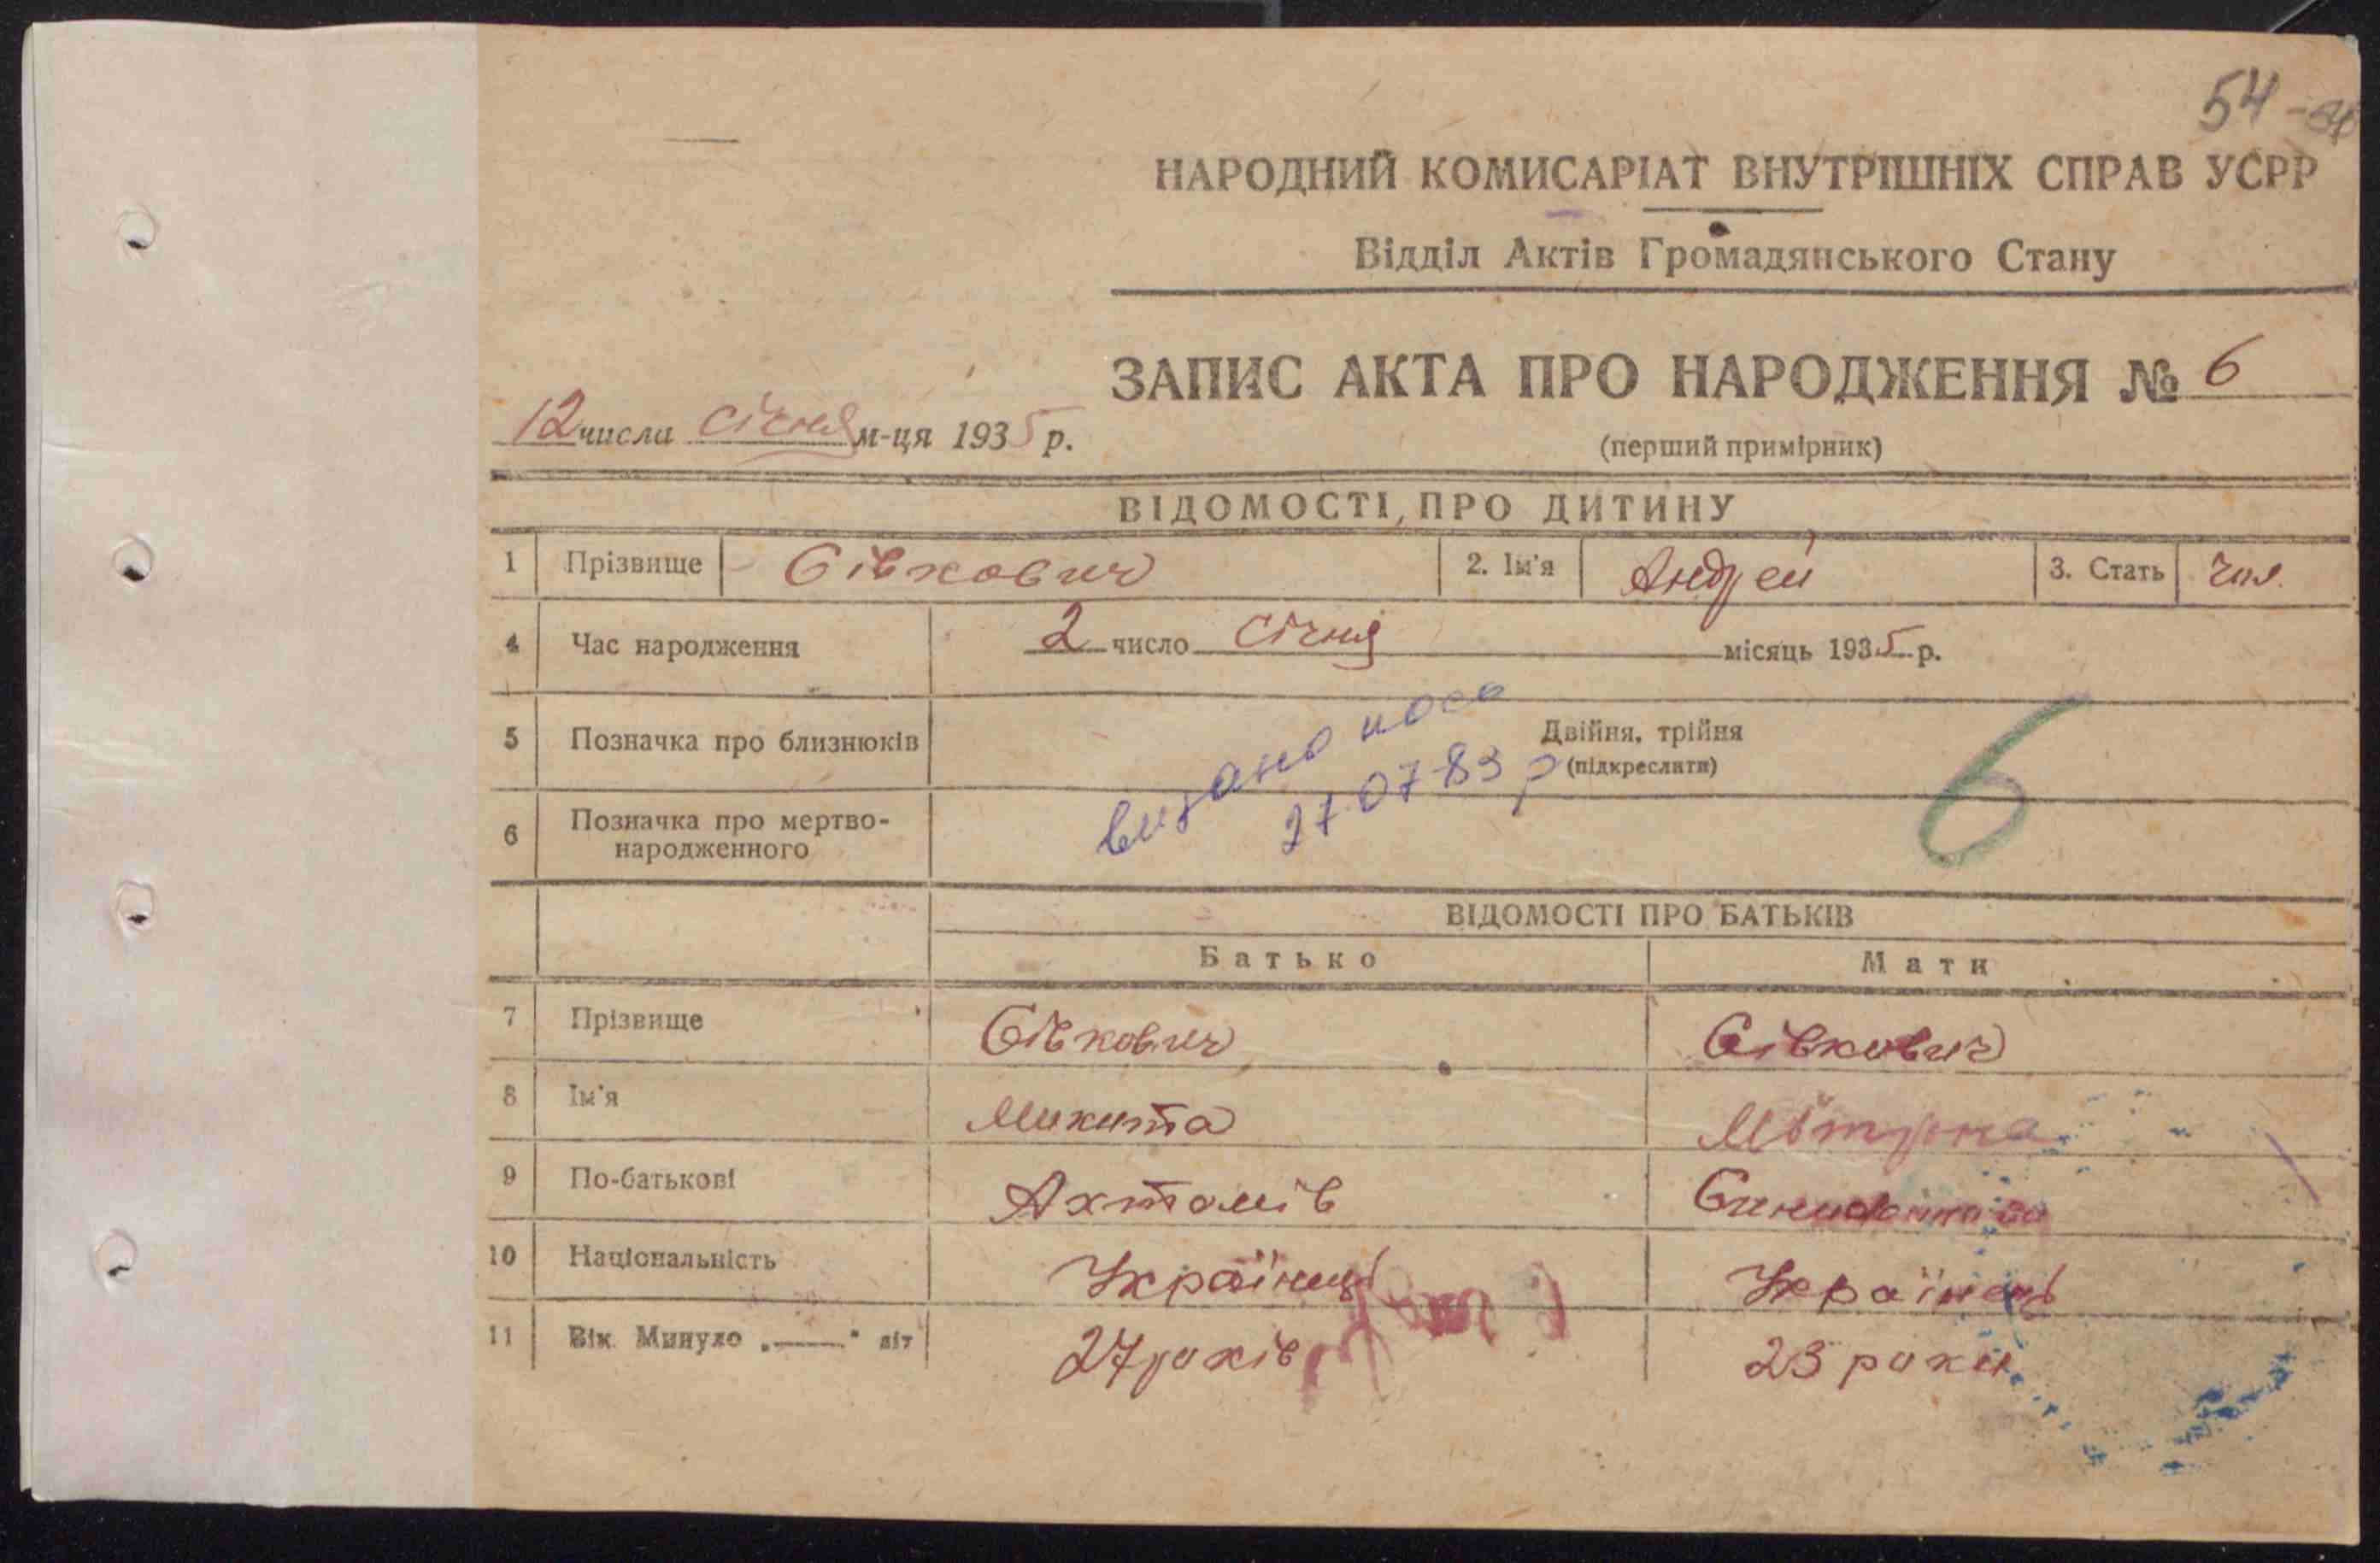 54
НАРОДНИЙ КОМИСАРІАТ ВНУТРІШНІХ СПРАВ УСРР
Відділ Актів Громадянського Стану
ЗАПИС АКТА ПРО НАРОДЖЕННЯ № 6
12 числа січня м-ця 1935 р.
(перший примірник)
ВІДОМОСТІ ПРО ДИТИНУ
1 Прізвище Сівкович 2. Ім'я Андрей 3. Стать чол.
4 Час народження 2 число січня місяць 1935 р.
5 Позначка про близнюків Двійня, трійня
(підкреслити)
видано
27.07.83 р
6
6 Позначка про мертво-
народженного
ВІДОМОСТІ ПРО БАТЬКІВ
Батько Мати
7 Прізвище Сівкович Сівкович
8 Ім'я Микита Мотрона
9 По-батькові Ахтомів
10 Національність Українець Українець
11 Вік. Минуло „——" літ 27 років 23 роки